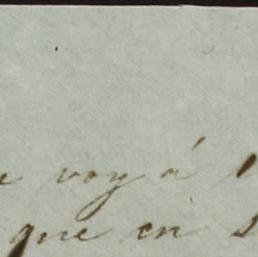 voy á
que en